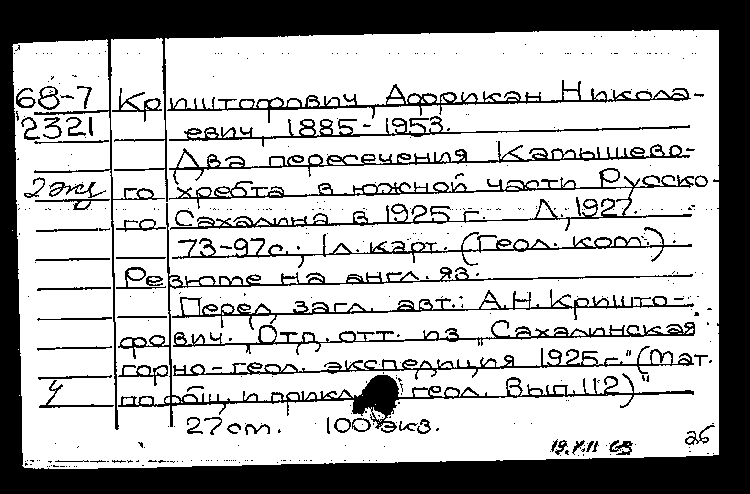 68-7 Криштофович, Африкан Никола-
2321 евич, 1885-1953.
Два пересечения Камышево-
2 экз го хребта в южной части Русско-
го Сахалина в 1925 г. Л., 1927.
73-97с.; 1л. карт. (Геол. ком.).
Резюме на англ. яз.
Перед загл. авт.: А.Н. Кришто-
фович. "Отд. отт. из "Сахалинская
горно-геол. экспедиция 1925г." (Мат.
по общ. и прикл. геол. Вып. 112)"
27 cm. 100 экз.